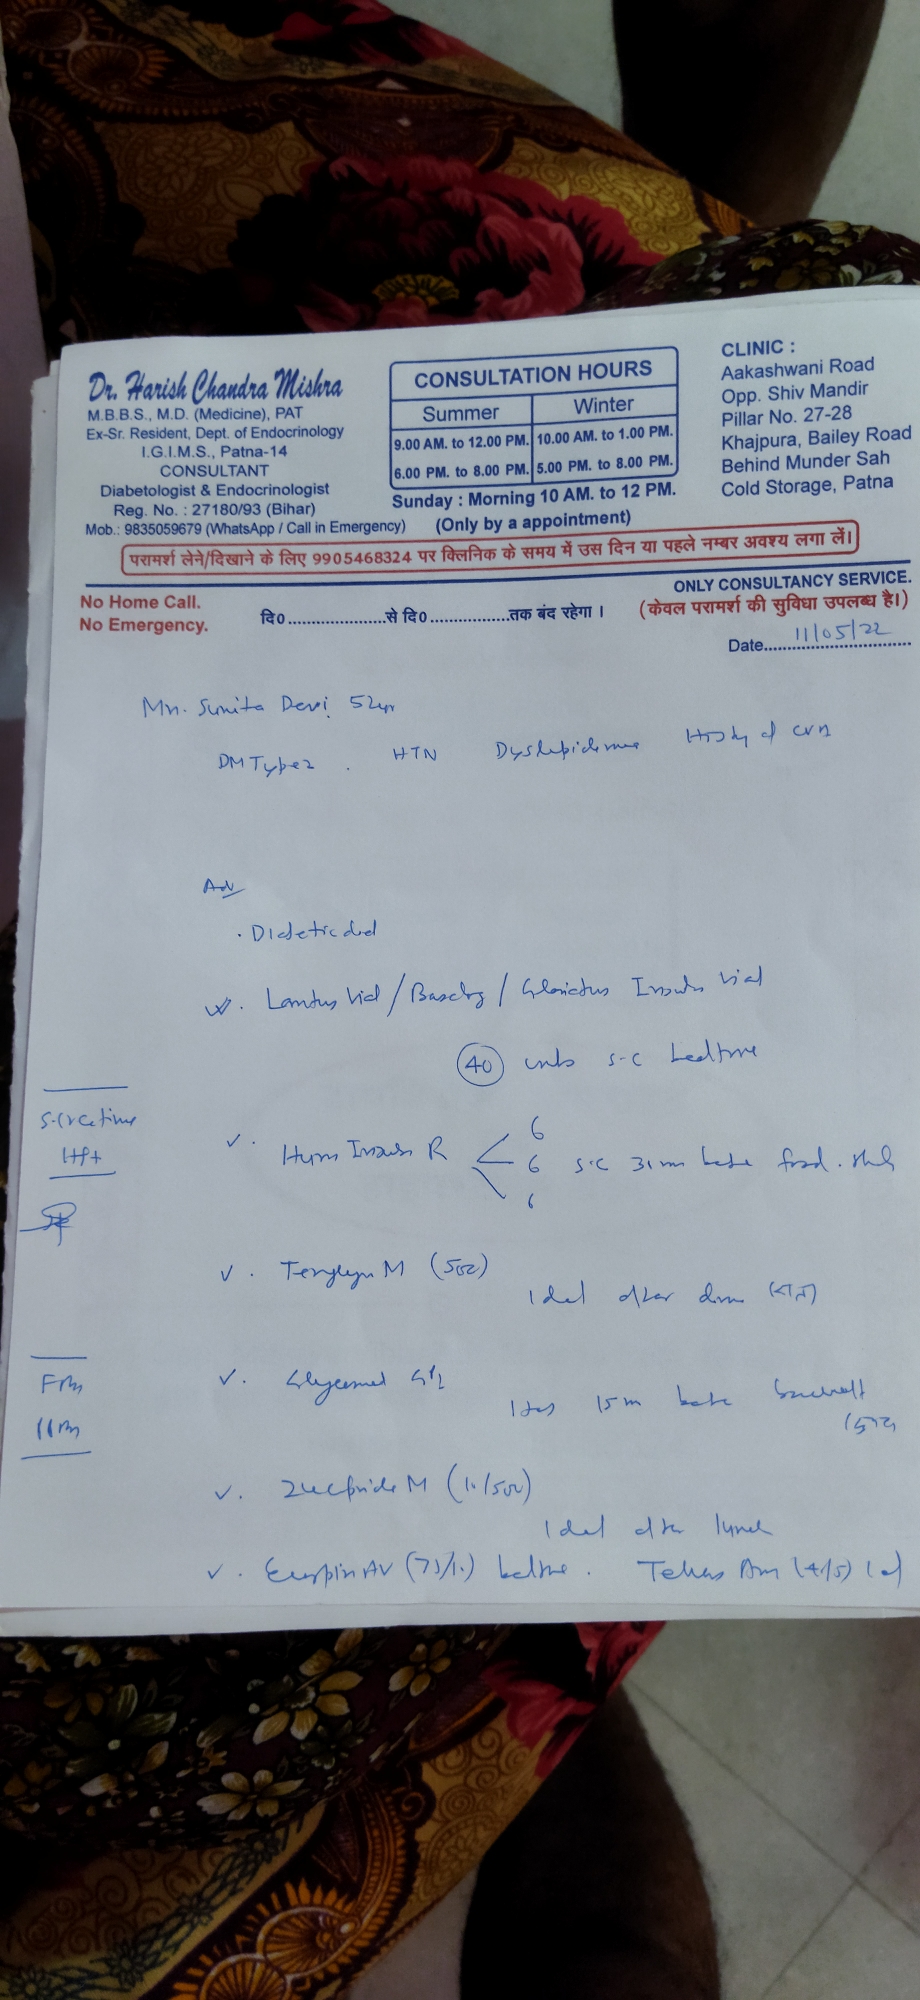 Dr. Harish Chandra Mishra
M.B.B.S., M.D. (Medicine), PAT
Ex-Sr. Resident, Dept. of Endocrinology
I.G.I.M.S., Patna-14
CONSULTANT
Diabetologist & Endocrinologist
Reg. No. : 27180/93 (Bihar)
Mob.: 9835059679 (WhatsApp / Call in Emergency)
CONSULTATION HOURS
Summer Winter
9.00 AM. to 12.00 PM. 10.00 AM. to 1.00 PM.
6.00 PM. to 8.00 PM. 5.00 PM. to 8.00 PM.
Sunday : Morning 10 AM. to 12 PM.
(Only by a appointment)
CLINIC :
Aakashwani Road
Opp. Shiv Mandir
Pillar No. 27-28
Khajpura, Bailey Road
Behind Munder Sah
Cold Storage, Patna
परामर्श लेने/दिखाने के लिए 9905468324 पर क्लिनिक के समय में उस दिन या पहले नम्बर अवश्य लगा लें।
No Home Call.
No Emergency.
दि०....................से दि०.................तक बंद रहेगा ।
ONLY CONSULTANCY SERVICE.
(केवल परामर्श की सुविधा उपलब्ध है।)
Date 11/05/22
Sunita Devi 52yr
DM Type 2 . HTN Dyslipidemia History of CVA
Adv
. Diabetic diet
Lantus Vial / Basalog / Glaritus Insulin Vial
40 units s-c bedtime
Insulin R 6 6 6 s-c before food
M (500)
Glycomet GP2
15 m before
M (1/500)
lunch
AV (75/10) bedtime . AM